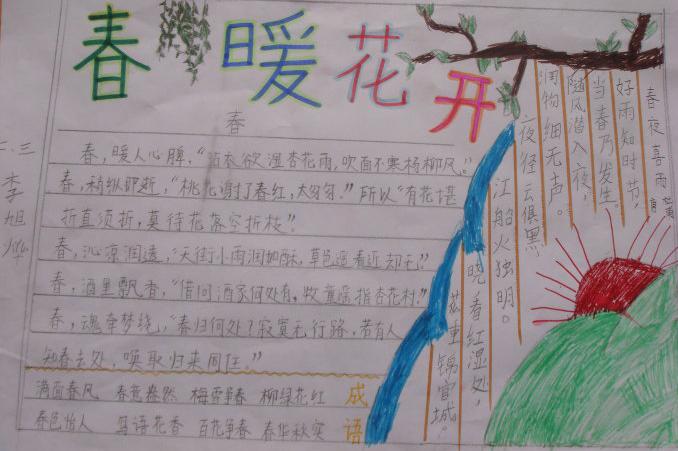 春暖花开
春
春，暖人心脾，“沾衣欲湿杏花雨，吹面不寒杨柳风。”
春，稍纵即逝，“桃花谢了春红，太匆匆。”所以“有花堪
折直须折，莫待花落空折枝”！
春，沁凉润透，“天街小雨润如酥，草色遥看近却无。”
春，酒里飘香，“借问酒家何处有，牧童遥指杏花村。”
春，魂牵梦绕，“春归何处？寂寞无行路，若有人
知春去处，唤取归来同住。”
满面春风 春意盎然 梅雪争春 柳绿花红
春色怡人 鸟语花香 百花争春 春华秋实
成语
春夜喜雨
好雨知时节，
当春乃发生。
随风潜入夜，
润物细无声。
夜径云俱黑，
江船火独明。
晓看红湿处，
花重锦官城。
二、三
李旭烨